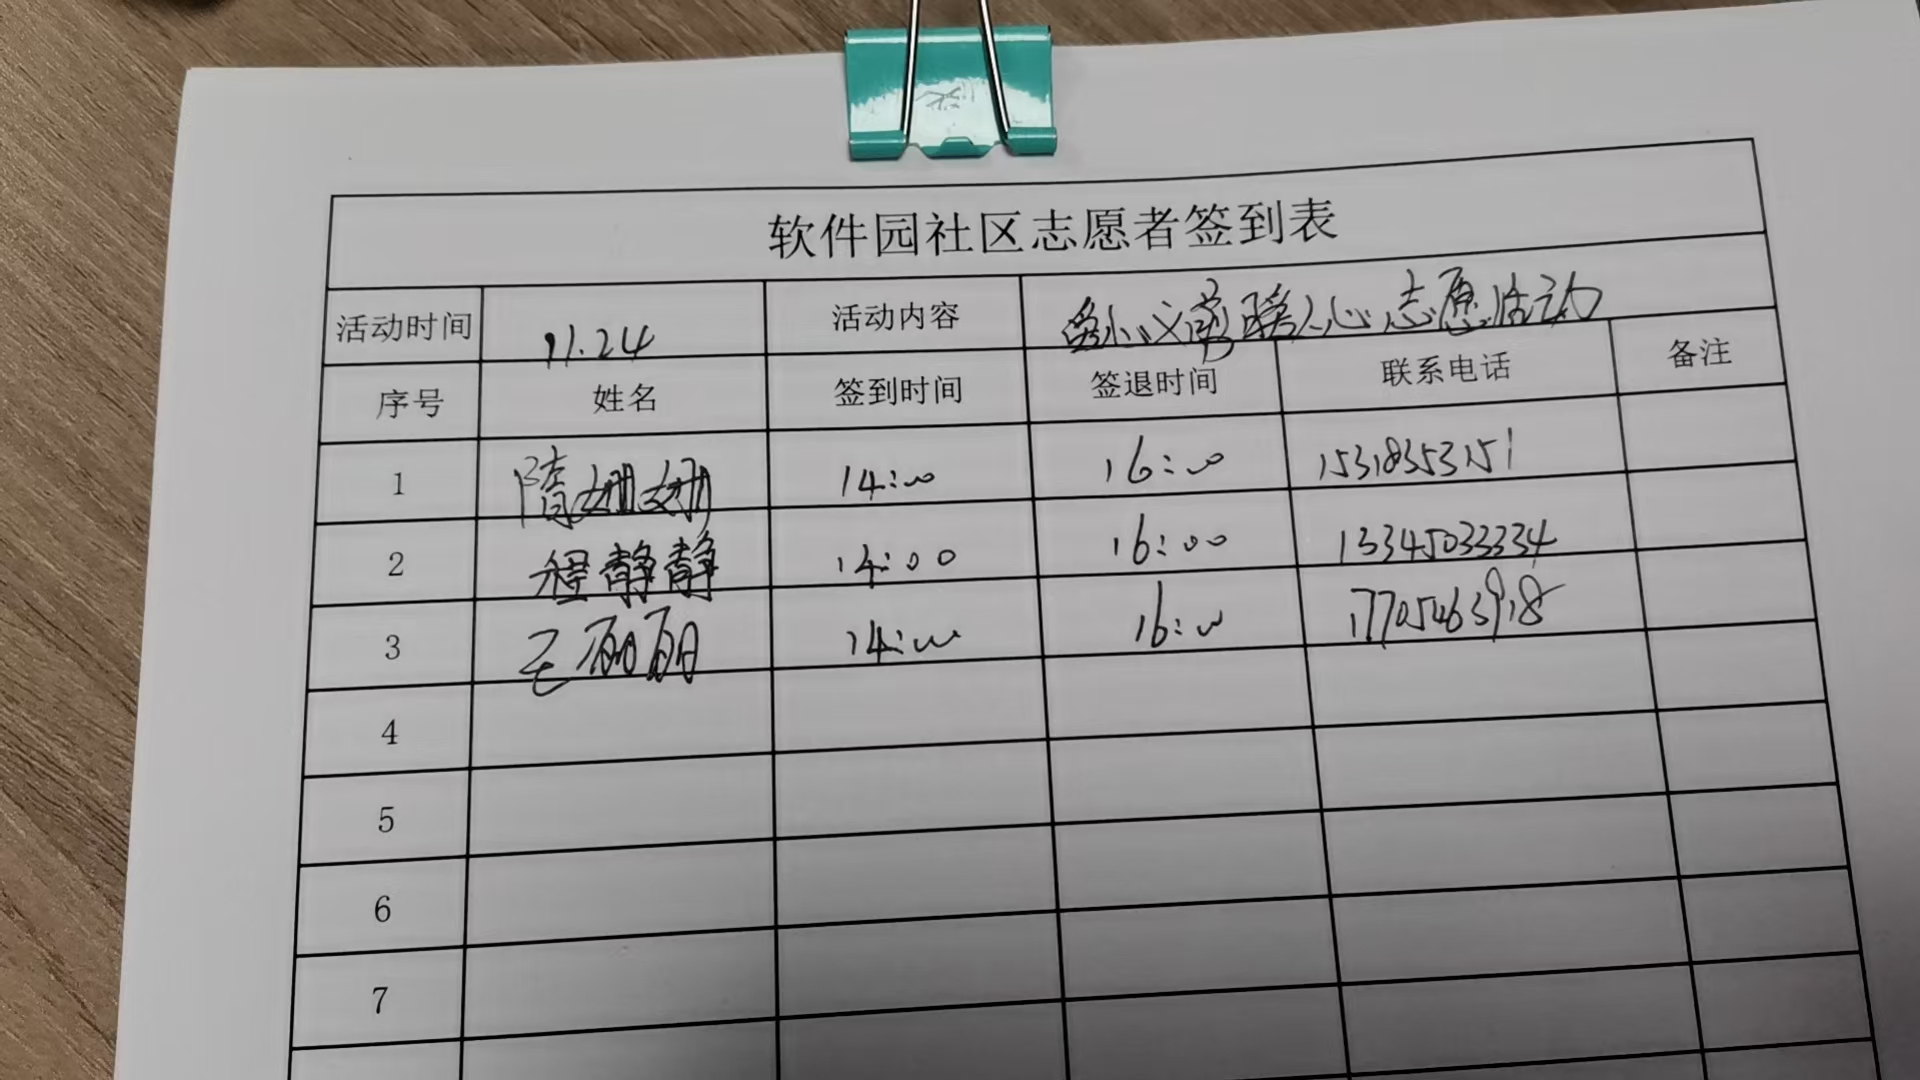 软件园社区志愿者签到表
活动时间 11.24 活动内容 义剪暖人心志愿活动
序号 姓名 签到时间 签退时间 联系电话 备注
1 隋姗姗 14:00 16:00 15318353151
2 程静静 14:00 16:00 13345033334
3 王丽丽 14:00 16:00 17705463918
4
5
6
7